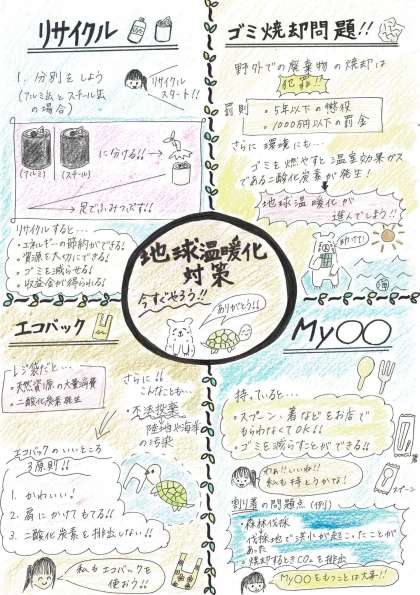 リサイクル
1. 分別をしよう
(アルミ缶とスチール缶
の場合)
リサイクル
スタート!!
(アルミ)
(スチール)
に分ける!!
足でふみつぶす!!
リサイクルすると…
・エネルギーの節約ができる!
・資源を大切にできる!
・ゴミを減らせる!
・収益金が得られる!
ゴミ焼却問題!!
野外での廃棄物の焼却は
犯罪!!
罰則
・5年以下の懲役
・1000万円以下の罰金
さらに環境にも…
ゴミを燃やすと温室効果ガス
である二酸化炭素が発生!
地球温暖化が
進んでしまう!!
助けて!
海
地球温暖化
対策
今すぐやろう!!
ありがとう!!
エコバック
レジ袋だと…
・天然資源の大量消費
・二酸化炭素発生
さらに!!
こんなことも…
・不法投棄
陸地や海洋
の汚染
エコバックのいいところ
3原則!!
1. かわいい!
2. 肩にかけてもてる!!
3. 二酸化炭素を排出しない!!
私もエコバックを
使おう!!
My〇〇
持っていると…
・スプーン、箸などをお店で
もらわなくてOK!!
・ゴミを減らすことができる!!
わぁ!!いいね!!
私も持とうかな!
スプーン
割り箸の問題点(例)
・森林伐採
伐採地で洪水が起こったことが
あった
・焼却するときCO₂を排出
My〇〇をもつことは大事!!